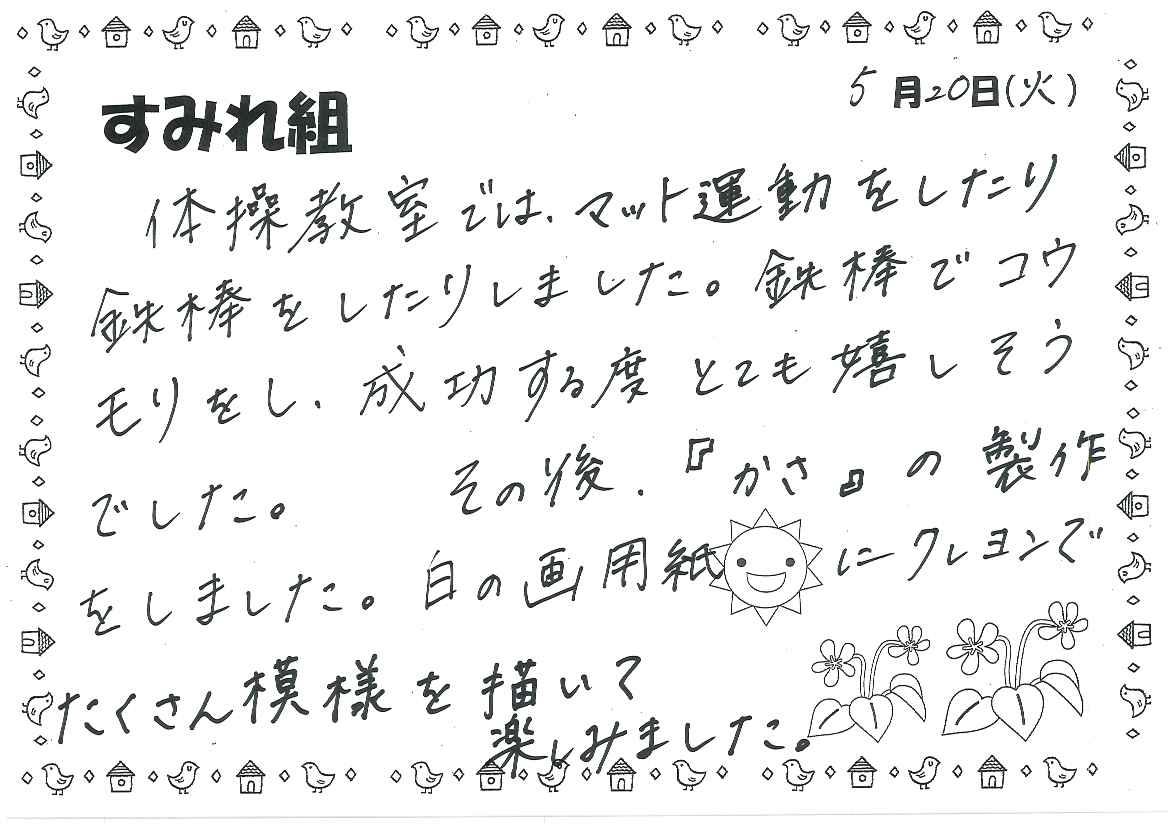 5月20日(火)
すみれ組
体操教室では、マット運動をしたり
鉄棒をしたりしました。鉄棒でコウ
モリをし、成功する度とても嬉しそう
でした。 その後、『かさ』の製作
をしました。白の画用紙にクレヨンで
たくさん模様を描いて
楽しみました。